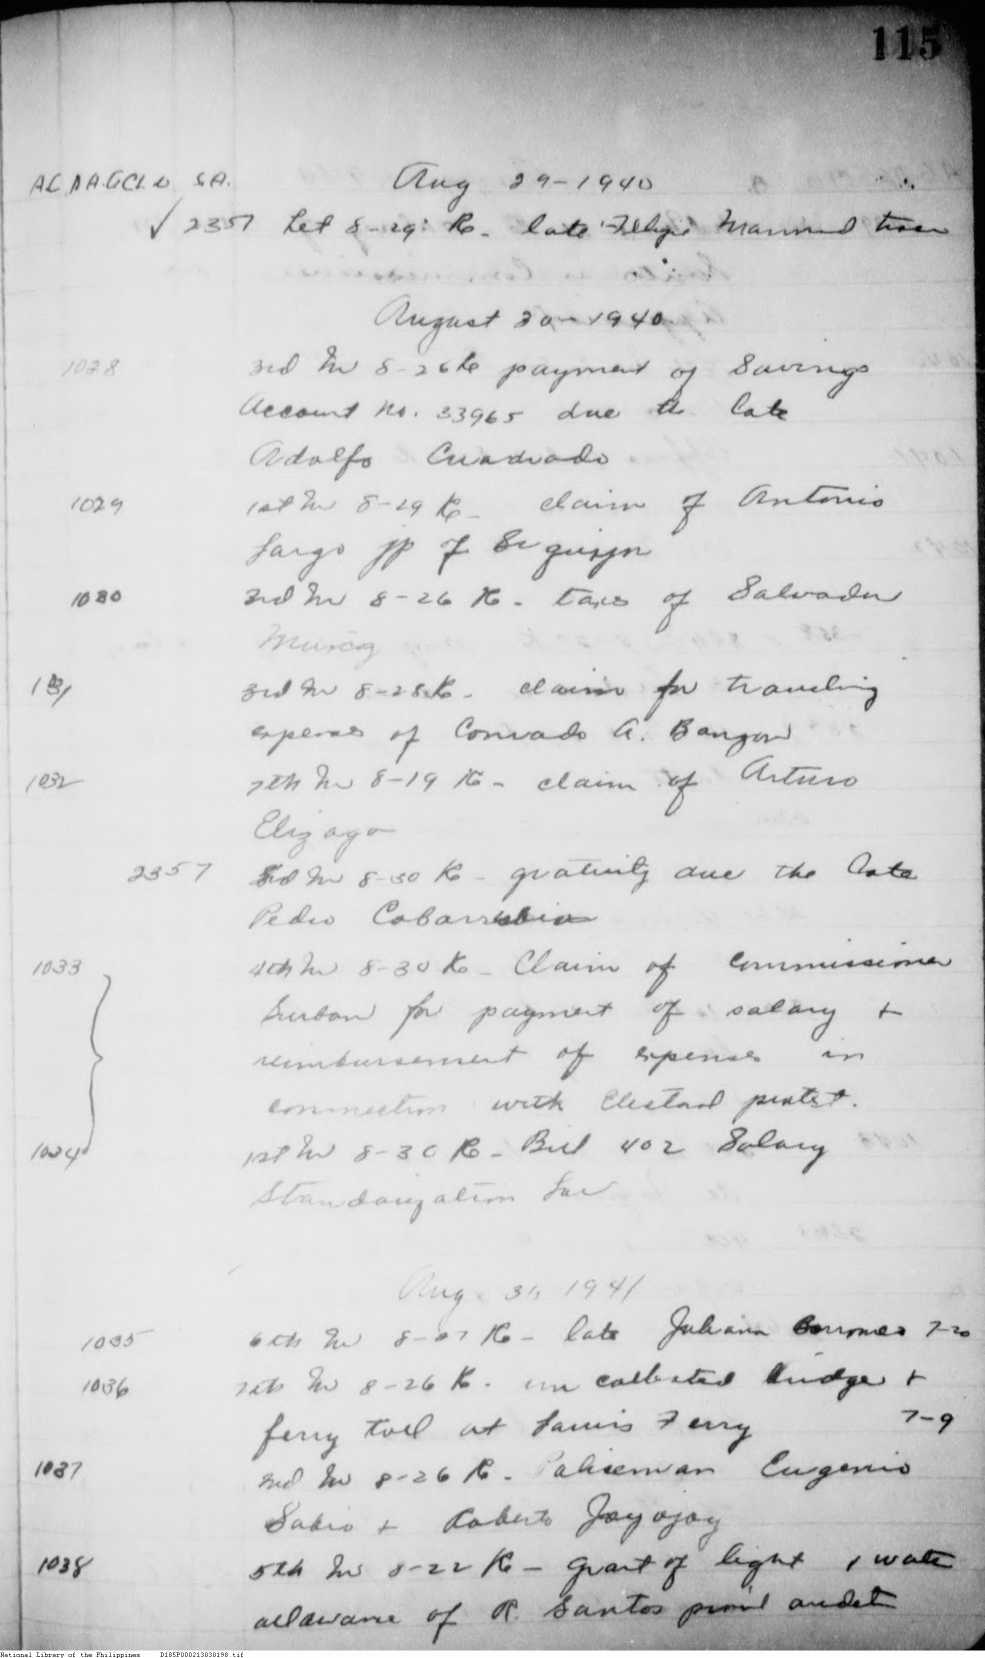 115
Aug 29-1940
✓ 2357 Let 8-29: Re- late
August 30-1940
1028 3rd In 8-26 Re payment of Savings
Account No. 33965 due to late
Adolfo Cuadrado
1029 1st In 8-29 Re- claim of Antonio
Largo jp of
1030 3rd In 8-26 Re- taxes of Salvador
3rd In 8-28 Re- claim for traveling
expenses of Conrado A. Bangon
1032 7th In 8-19 Re- claim of Arturo
Elizaga
2357 3rd In 8-30 Re- gratuity due the late
Pedro Cabarrubia
1033 4th In 8-30 Re- Claim of Commissioner
for payment of salary +
reimbursement of expenses in
connection with protest.
1034 1st In 8-30 Re- Bill 402 Salary
Standarization Law
Aug. 31, 1941
1035 6th In 8-27 Re- late Juliana 7-20
1036 7th In 8-26 Re- uncollected bridge +
ferry toll at Ferry 7-9
1037 3rd In 8-26 Re- Policeman Eugenio
Sabio + Roberto Jayojoy
1038 5th In 8-22 Re- grant of light + water
allowance of R. Santos
National Library of the Philippines